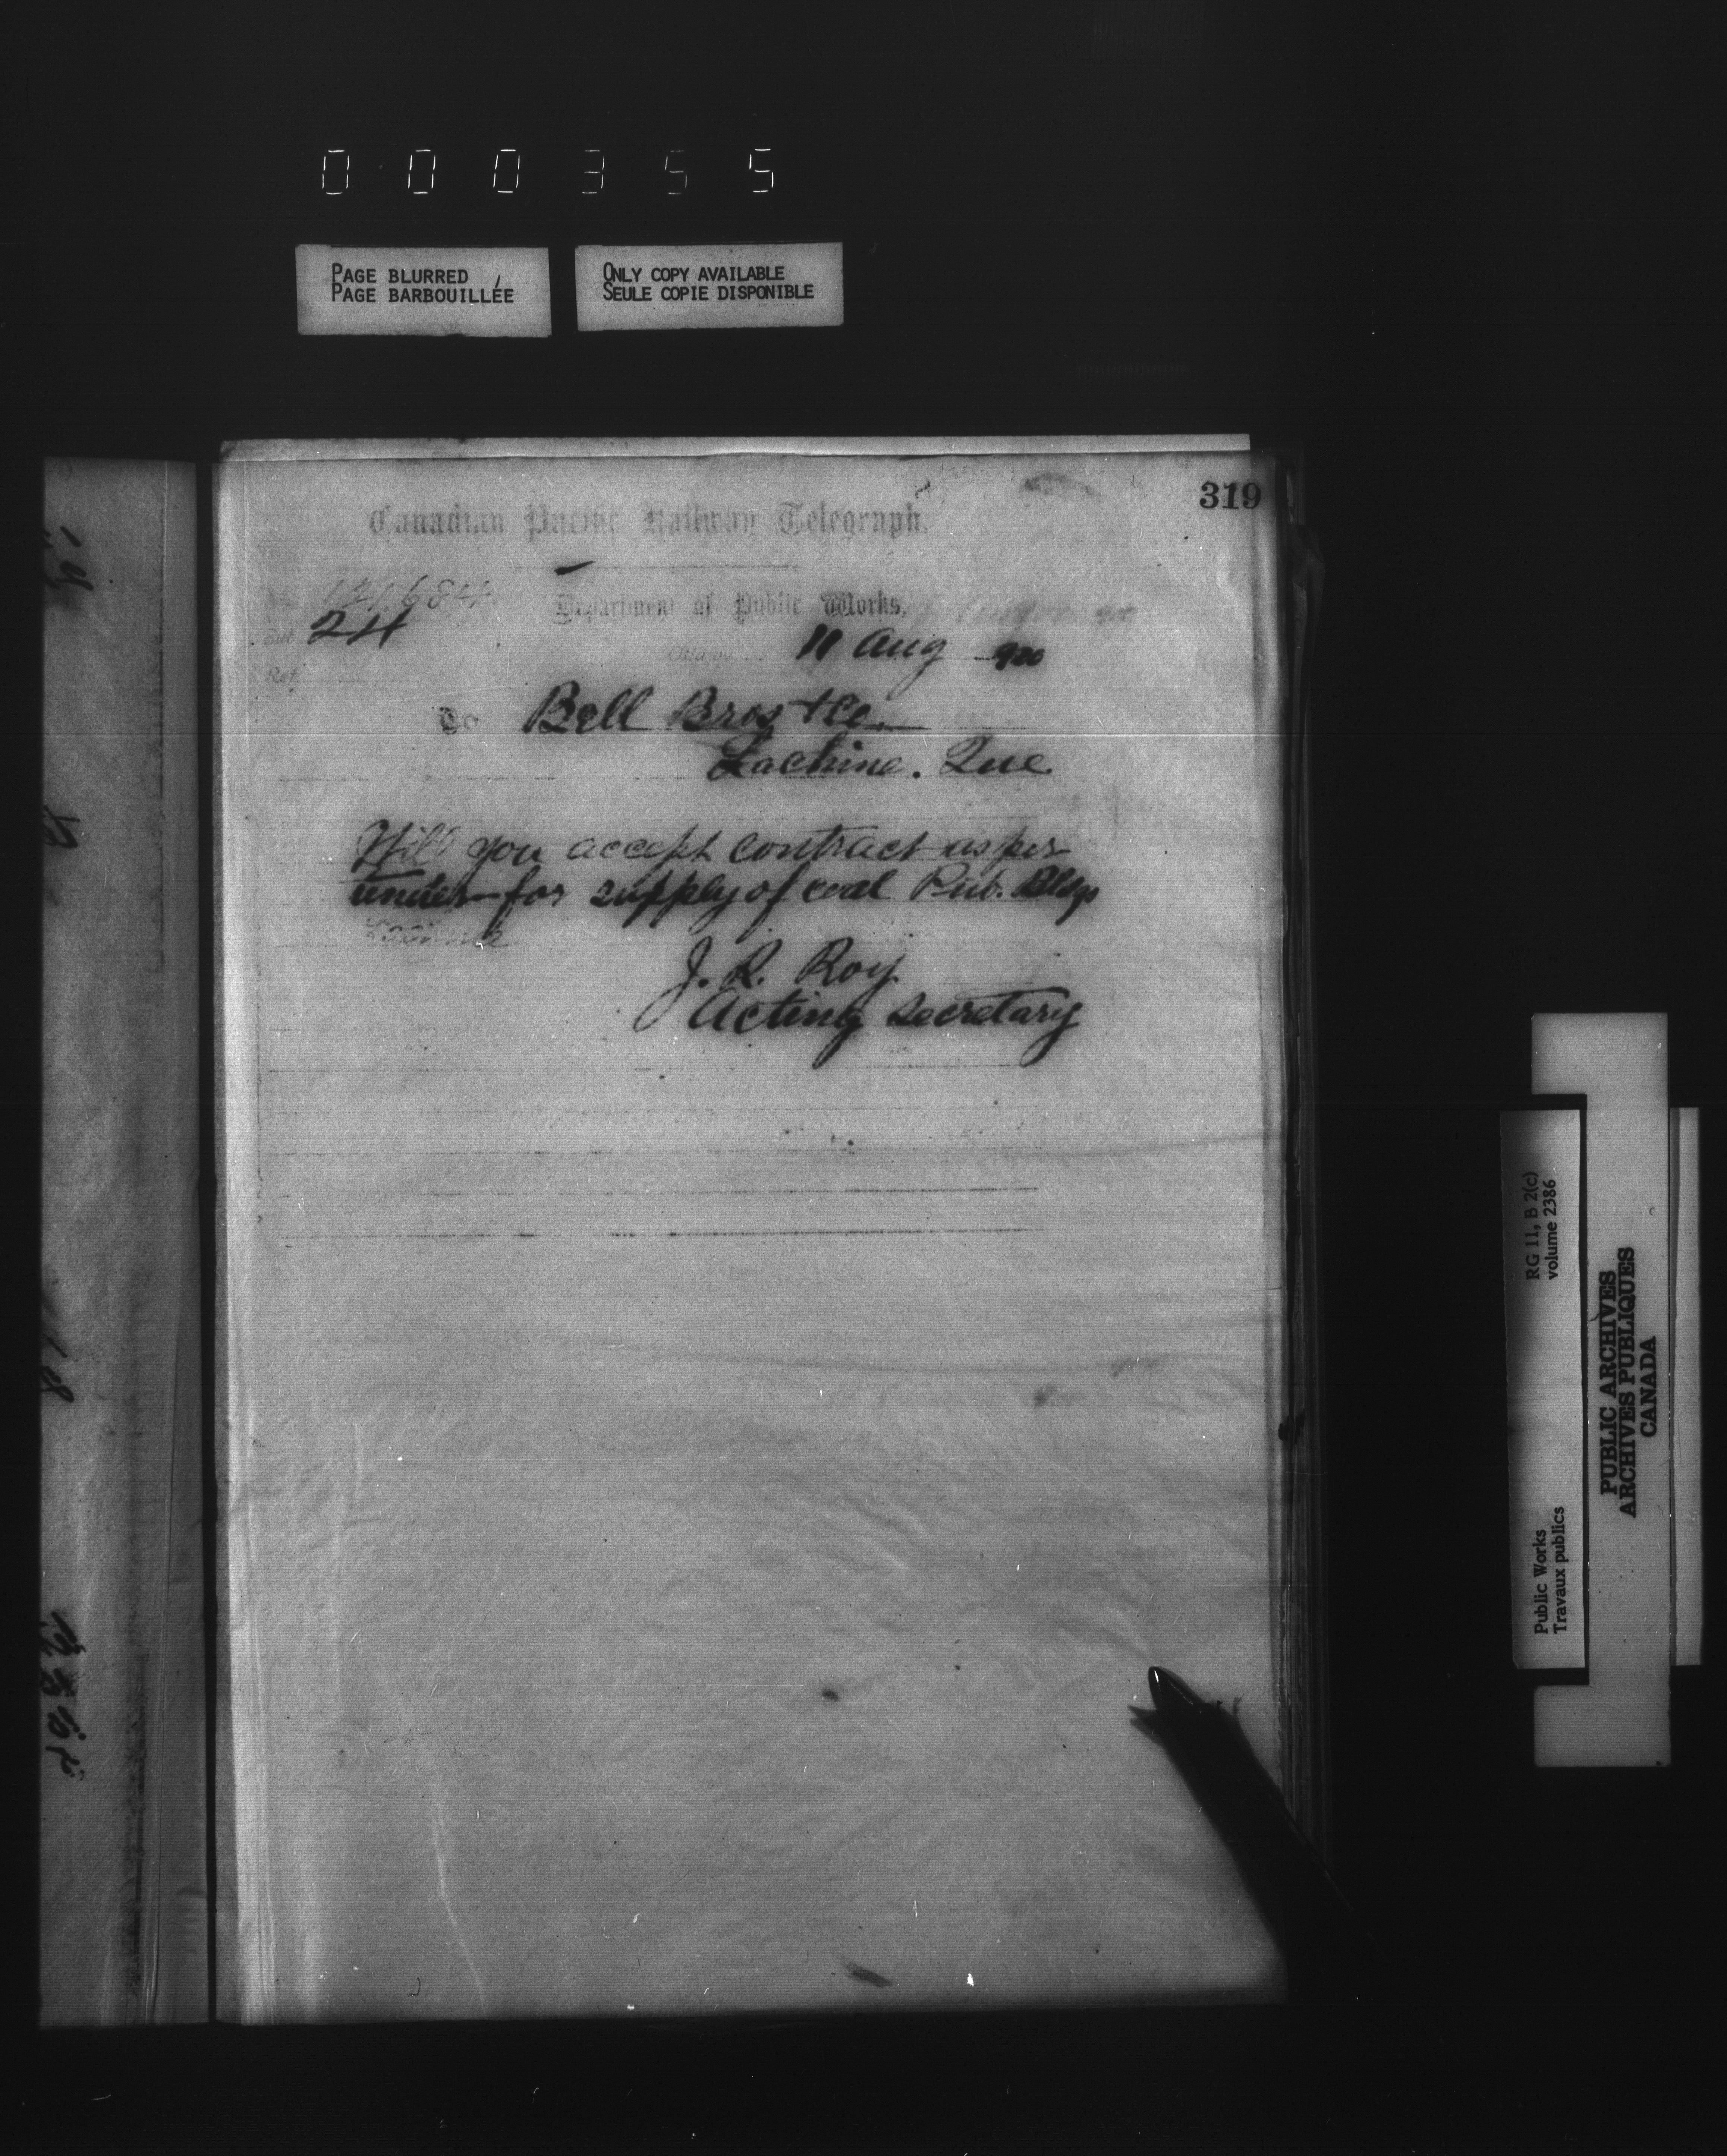 000355
PAGE BLURRED
PAGE BARBOUILLÉE
ONLY COPY AVAILABLE
SEULE COPIE DISPONIBLE
319
Canadian Pacific Railway Telegraph.
141684
Department of Public Works,
Sub 24
Ottawa 11 Aug 900
Ref.
To Bell Bros & Co.
Lachine. Que
Will you accept contract as per
tender for supply of coal Pub. Bldgs
Lachine
J. R. Roy
Acting Secretary
RG 11, B 2(c)
volume 2386
Public Works
Travaux publics
PUBLIC ARCHIVES
ARCHIVES PUBLIQUES
CANADA